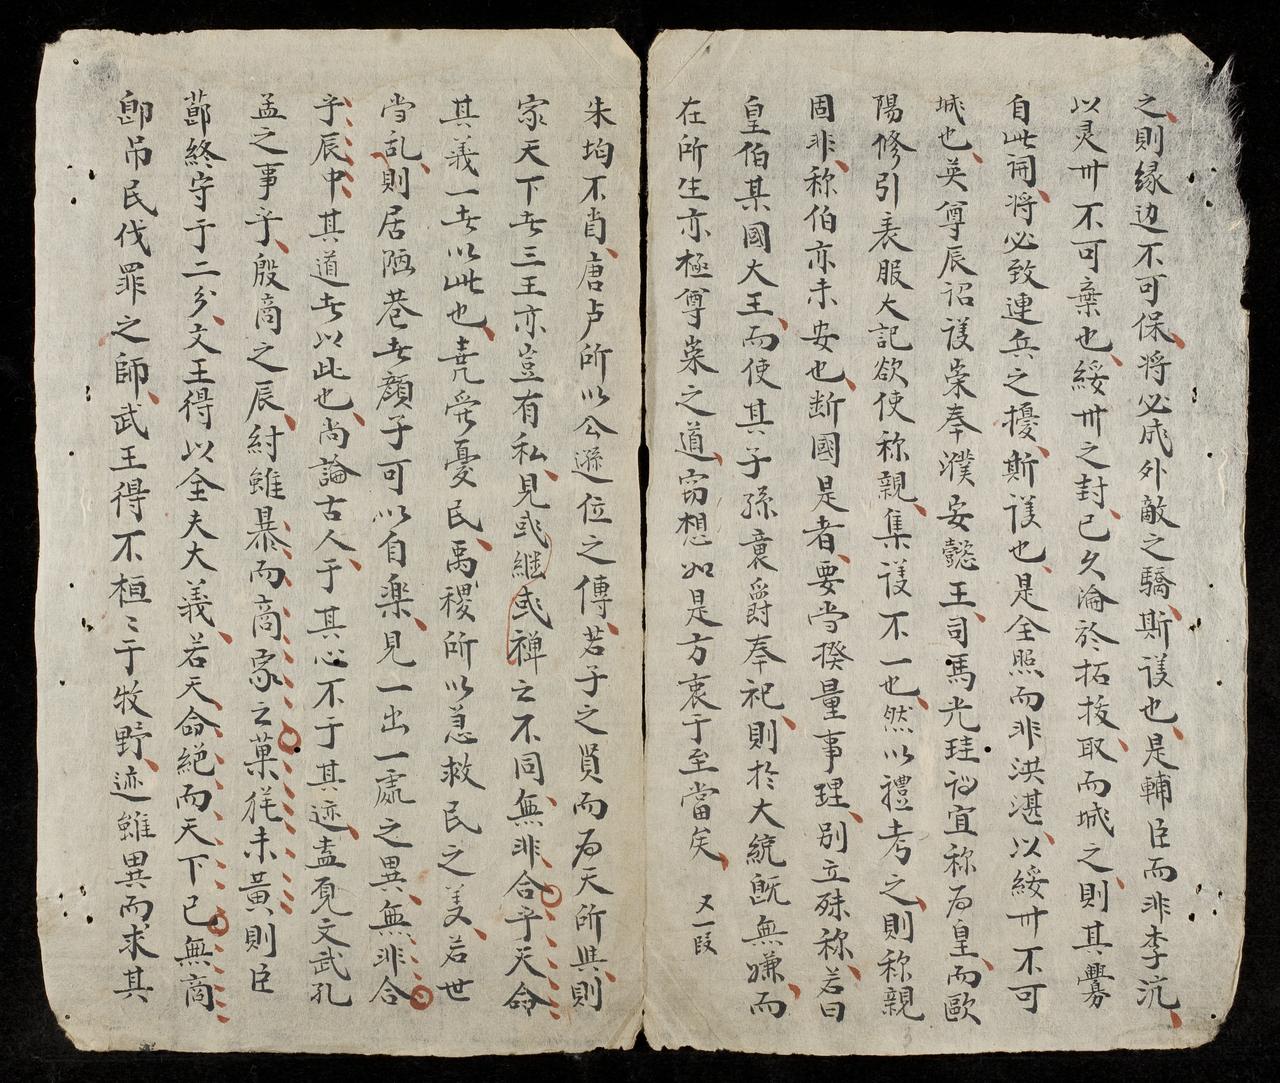 之則緣边不可保将必成外敵之驕斯議也是輔臣而非李沆
以灵卅不可棄也綏卅之封已久淪於拓拔取而城之則其釁
自此開将必致連兵之擾斯議也是全照而非洪湛以綏卅不可
城也英尊辰詔議崇奉濮安懿王司馬光珪謂宜称为皇而歐
陽修引丧服大記欲使称親集議不一也然以禮考之則称親
固非称伯亦未安也断國是者要当揆量事理別立殊称若曰
皇伯某國大王而使其子孫襲爵奉祀則於大統既無嫌而
在所生亦極尊崇之道窃想如是方衷于至當矣 又一段
朱均不肖唐卢所以公遜位之傳若子之賢而为天所與則
家天下者三王亦豈有私見或継或禅之不同無非合乎天命
其義一者以此也堯舜憂民禹稷所以急救民之美若世
当乱則居陋巷者顔子可以自楽見一出一處之異無非合
乎辰中其道者以此也尚論古人于其心不于其迹盍覓文武孔
孟之事乎殷商之辰紂雖暴而商家之菓旄未黃則臣
莭終守于二分文王得以全夫大義若天命絕而天下已無商
即吊民伐罪之師武王得不桓〻于牧野迹雖異而求其